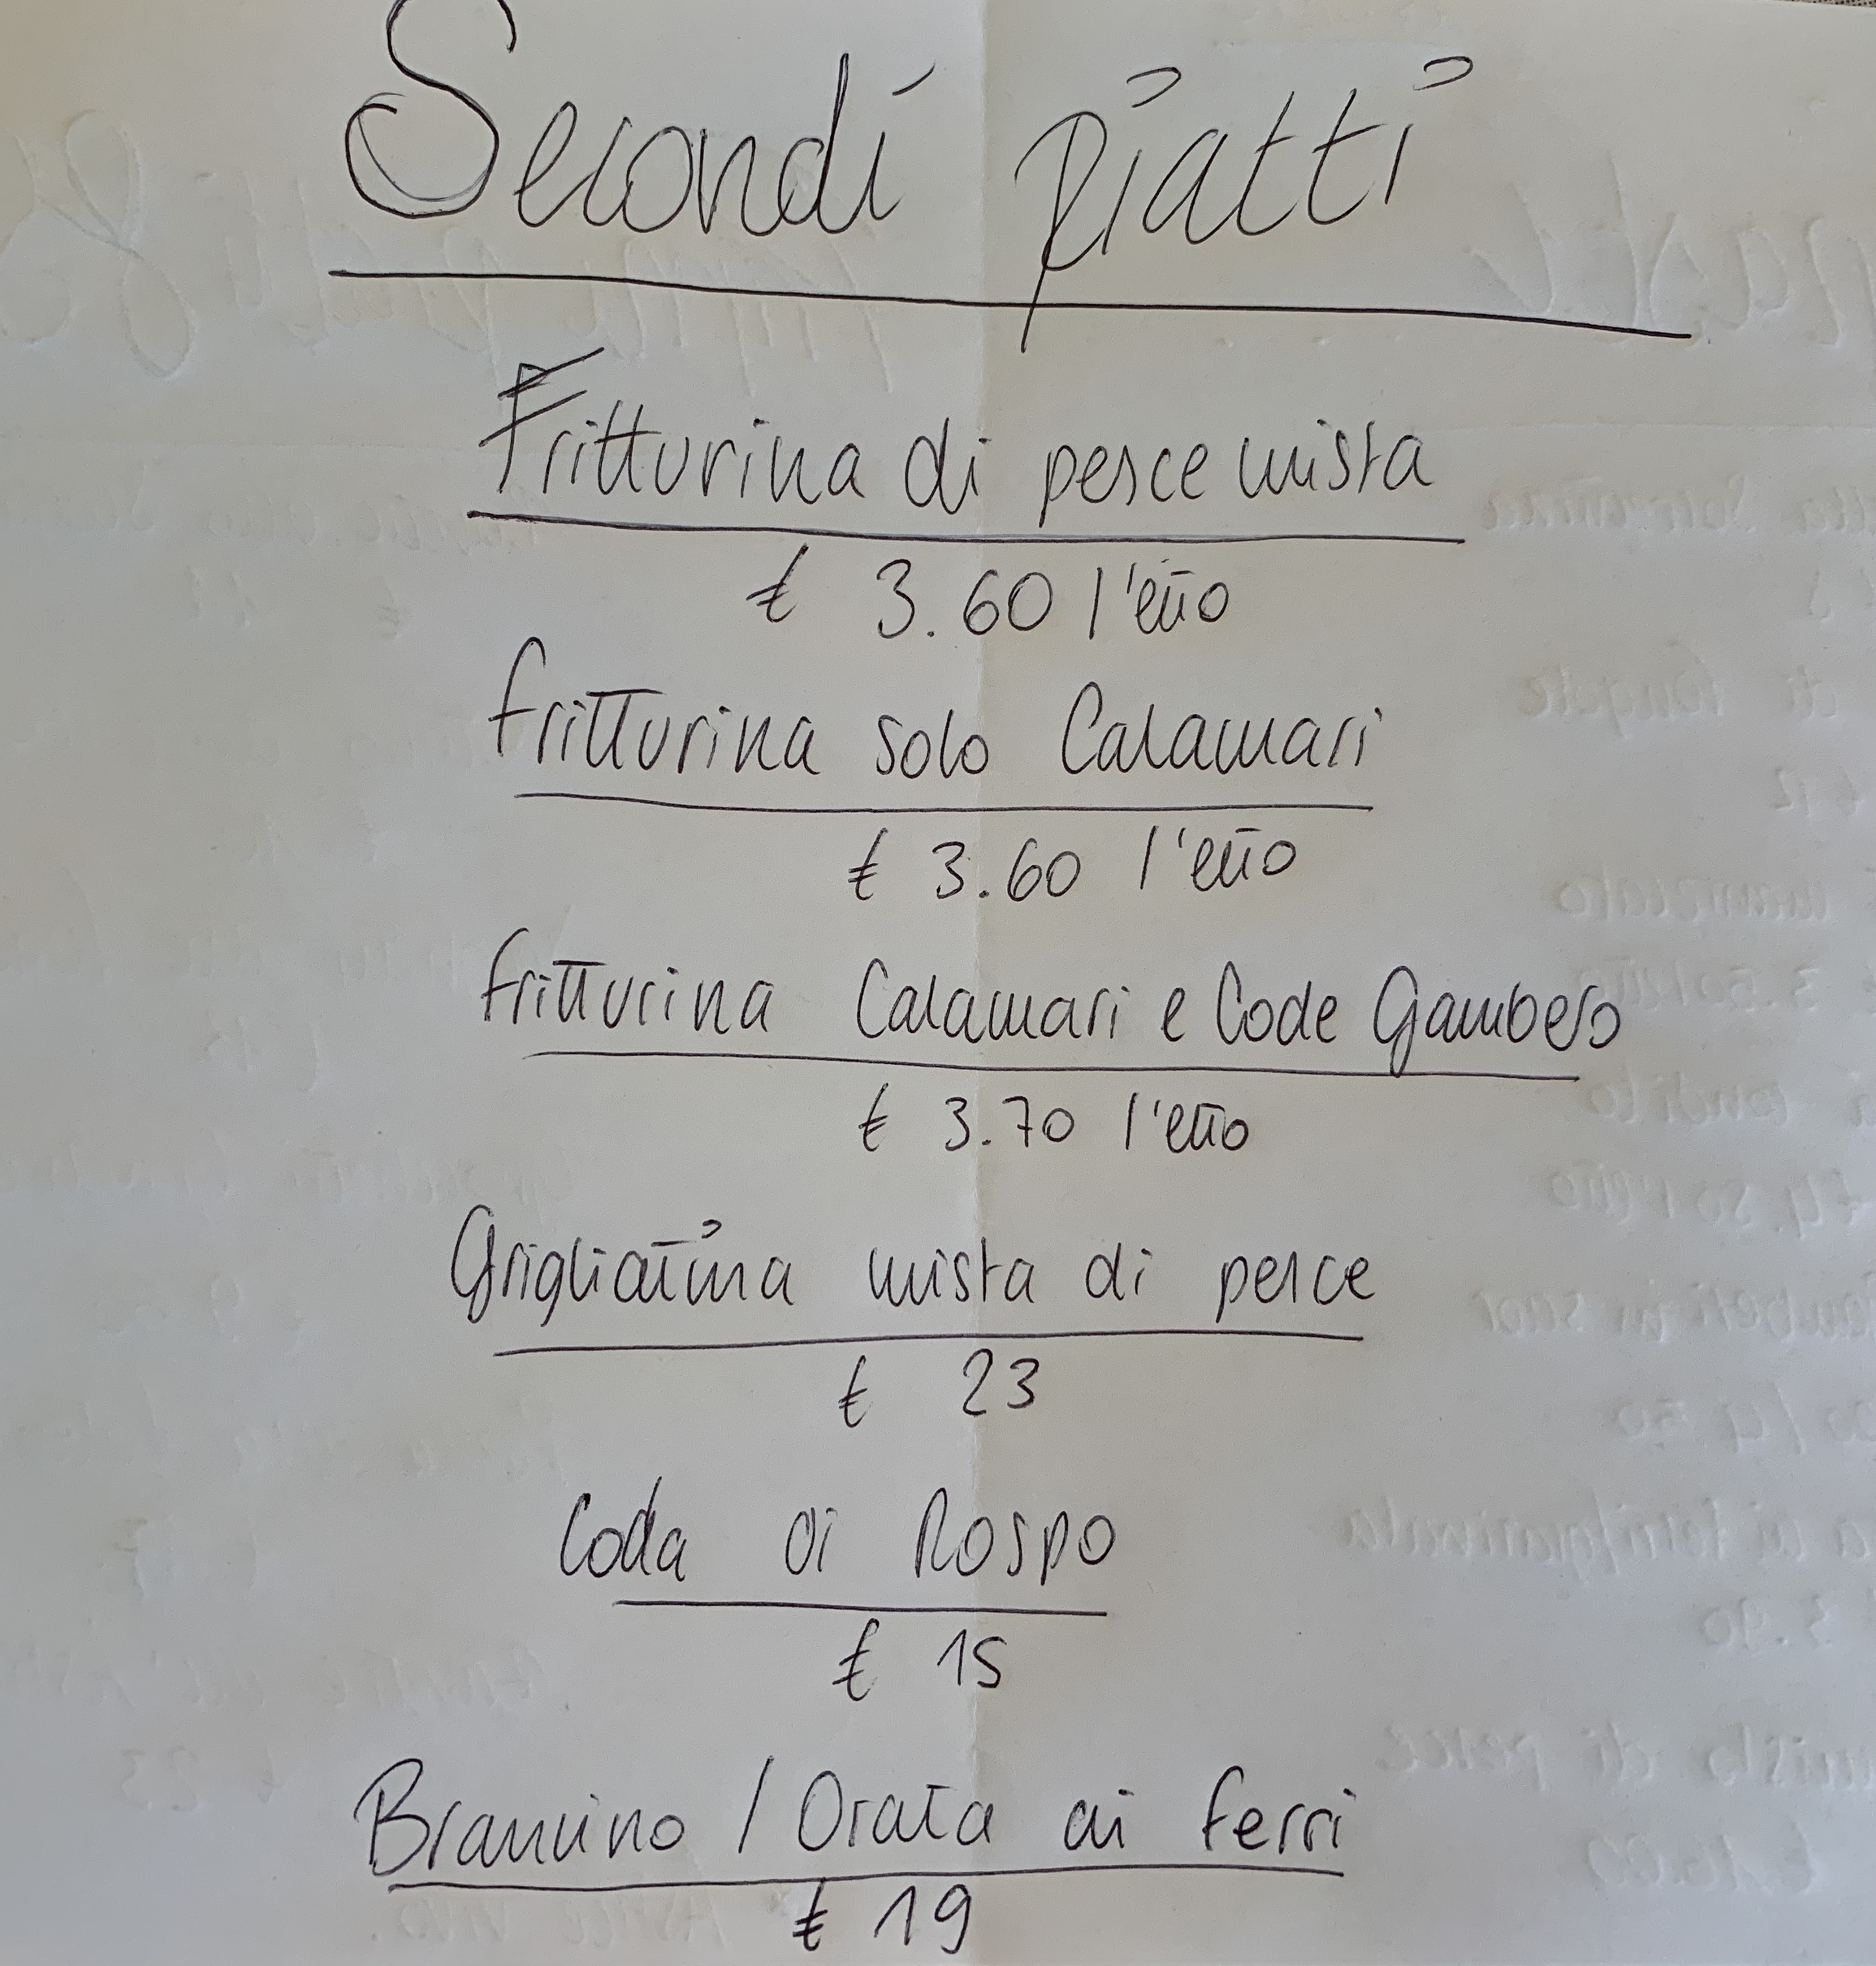 Secondi piatti
Fritturina di pesce mista
€ 3.60 l'etto
fritturina solo Calamari
€ 3.60 l'etto
fritturina Calamari e Code Gambero
€ 3.70 l'etto
Grigliatina mista di pesce
€ 23
Coda di Rospo
€ 15
Branzino / Orata ai ferri
€ 19